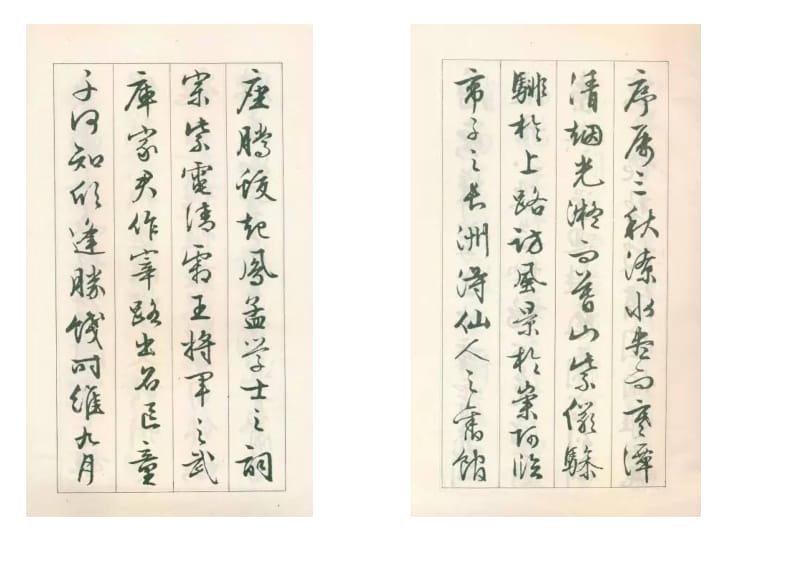 座騰蛟起鳳孟学士之詞
宗紫電清霜王将军之武
庫家君作宰路出名区童
子何知躬逢勝餞时維九月
序属三秋潦水尽而寒潭
清烟光凝而暮山紫儼驂
騑於上路訪風景於崇阿临
帝子之长洲得仙人之舊館